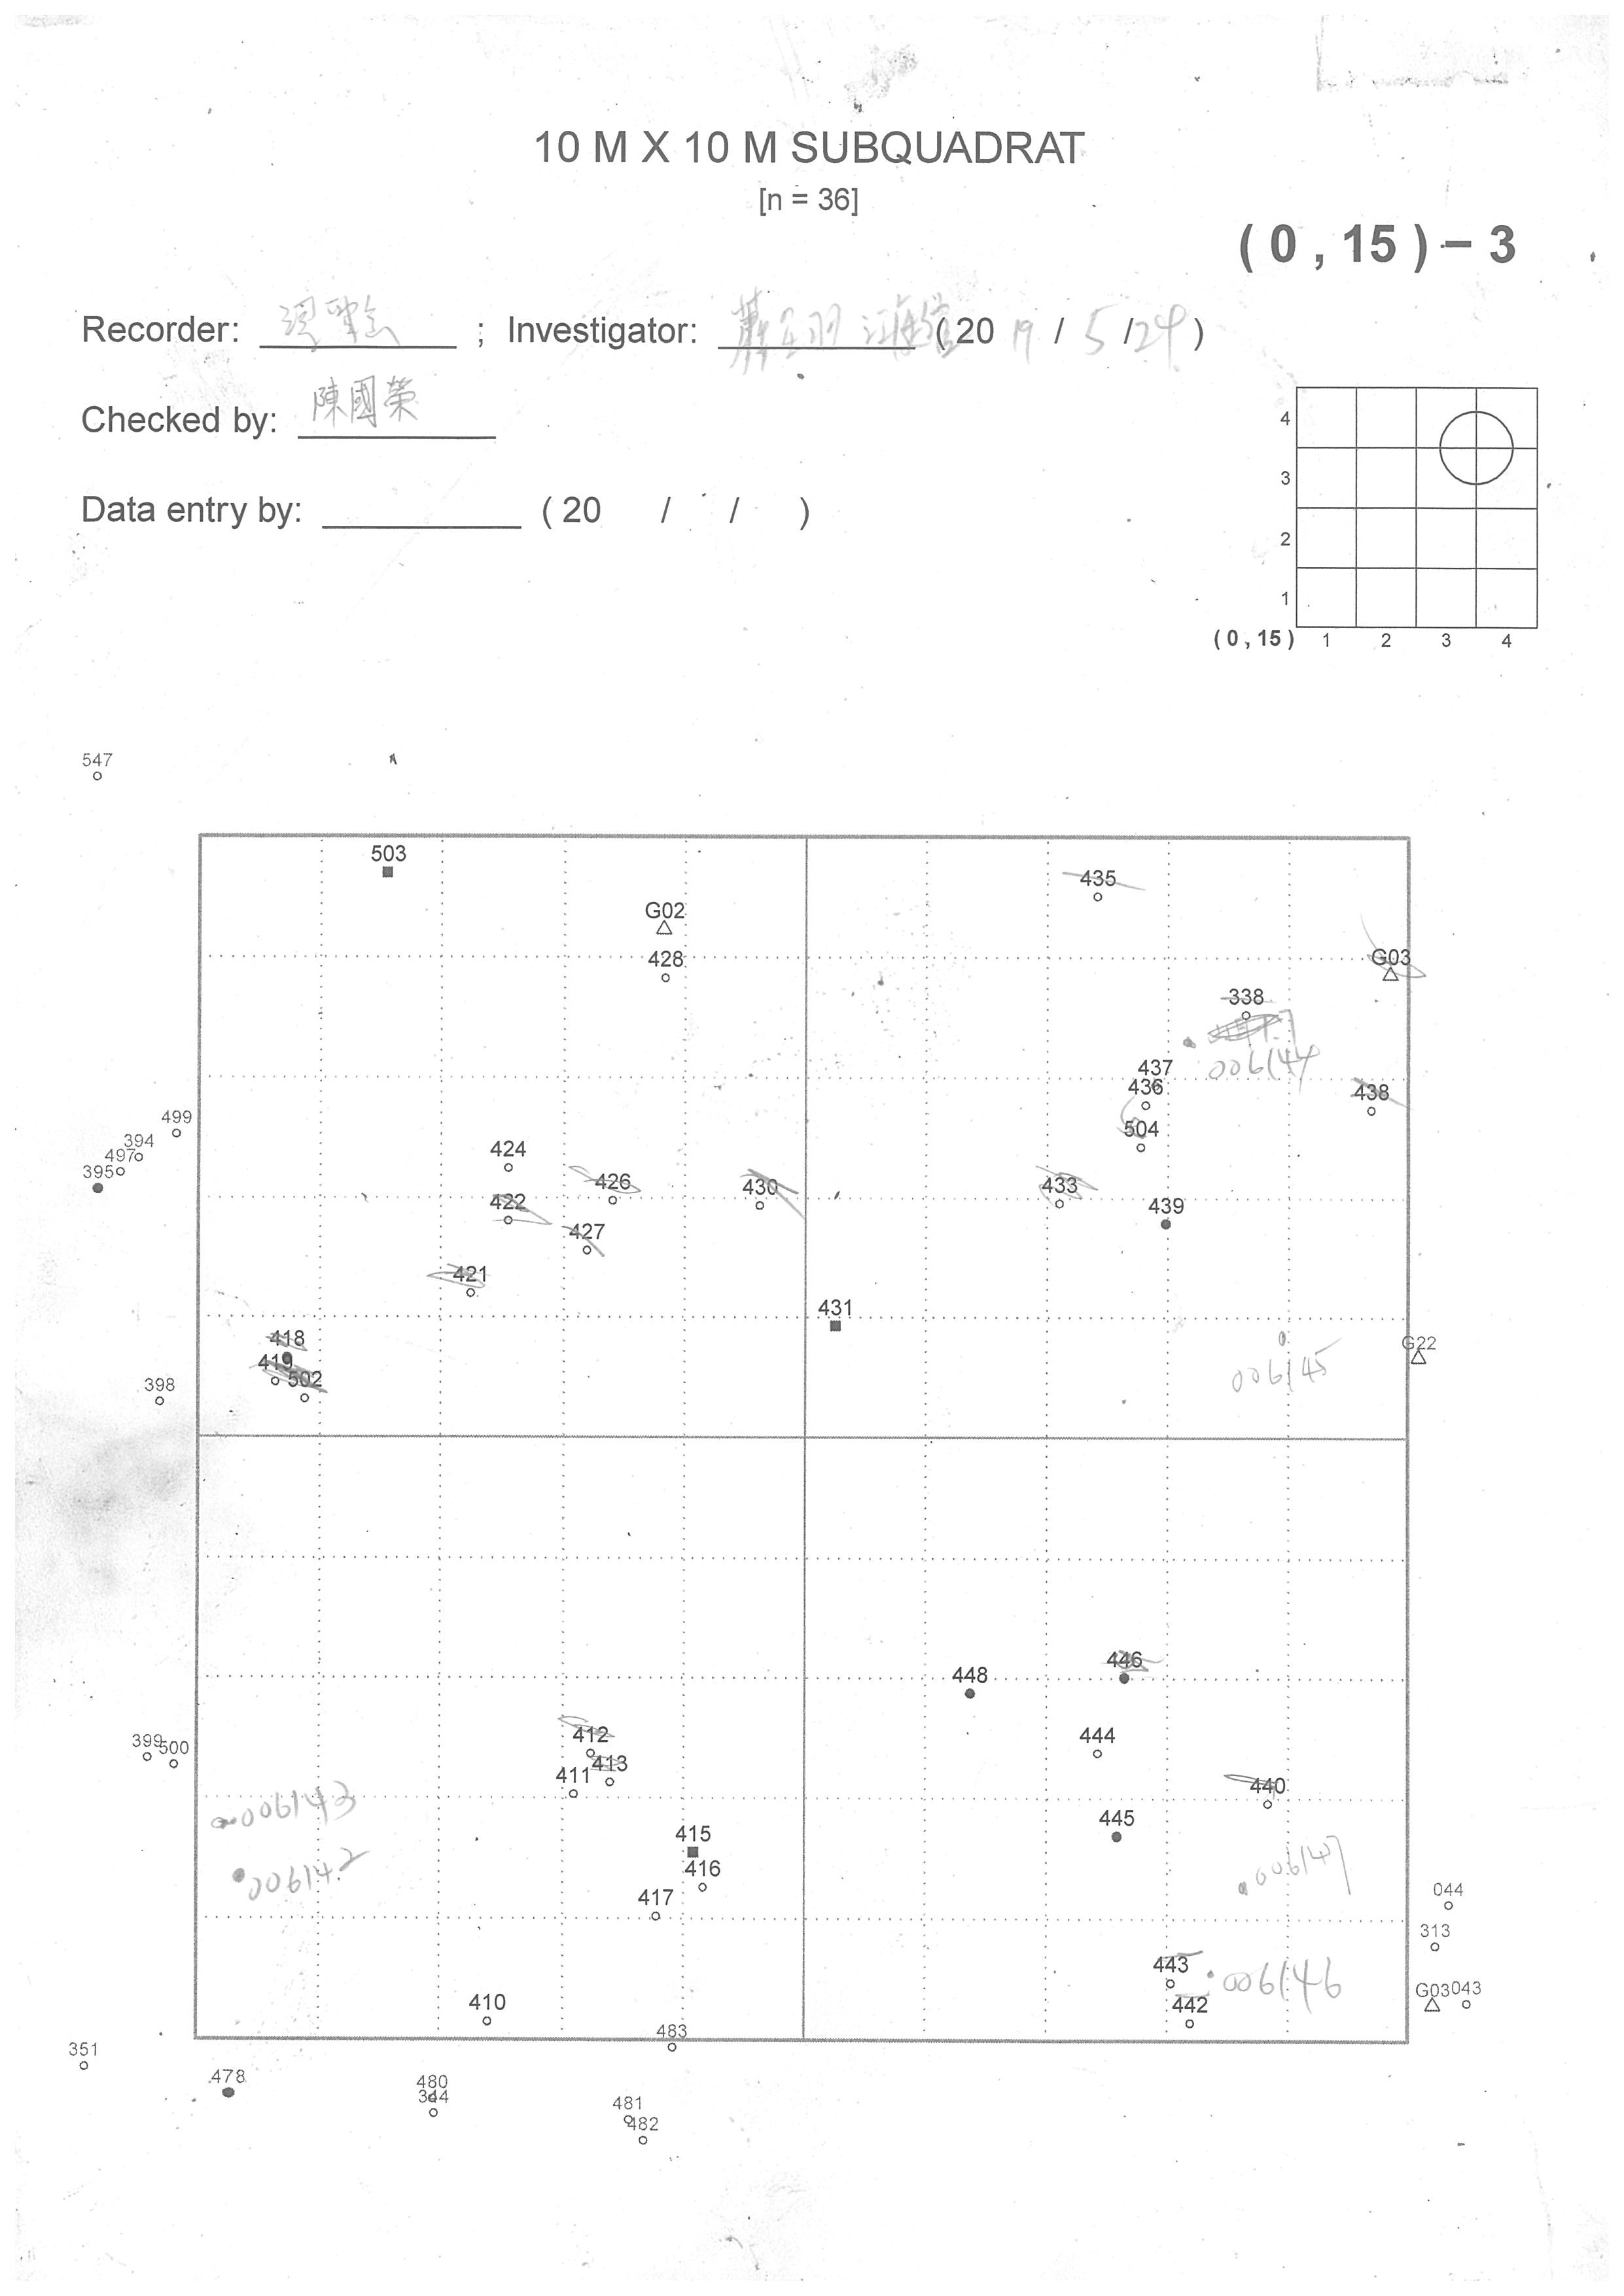 10 M X 10 M SUBQUADRAT
[n = 36]
( 0 , 15 ) – 3
Recorder: ; Investigator: ( 20 19 / 5 / 24 )
Checked by: 陳國榮
Data entry by: ( 20 / / )
4
3
2
1
( 0 , 15 ) 1 2 3 4
547
503
435
G02
G03
428
338
006144
437
436
438
499
504
394
424
497
395
426
430
433
422
439
427
421
431
418
G22
419
502
006145
398
446
448
412
444
399
500
413
411
440
006143
445
415
006142
416
006147
044
417
313
443
006146
G03
043
410
442
483
351
478
480
344
481
482